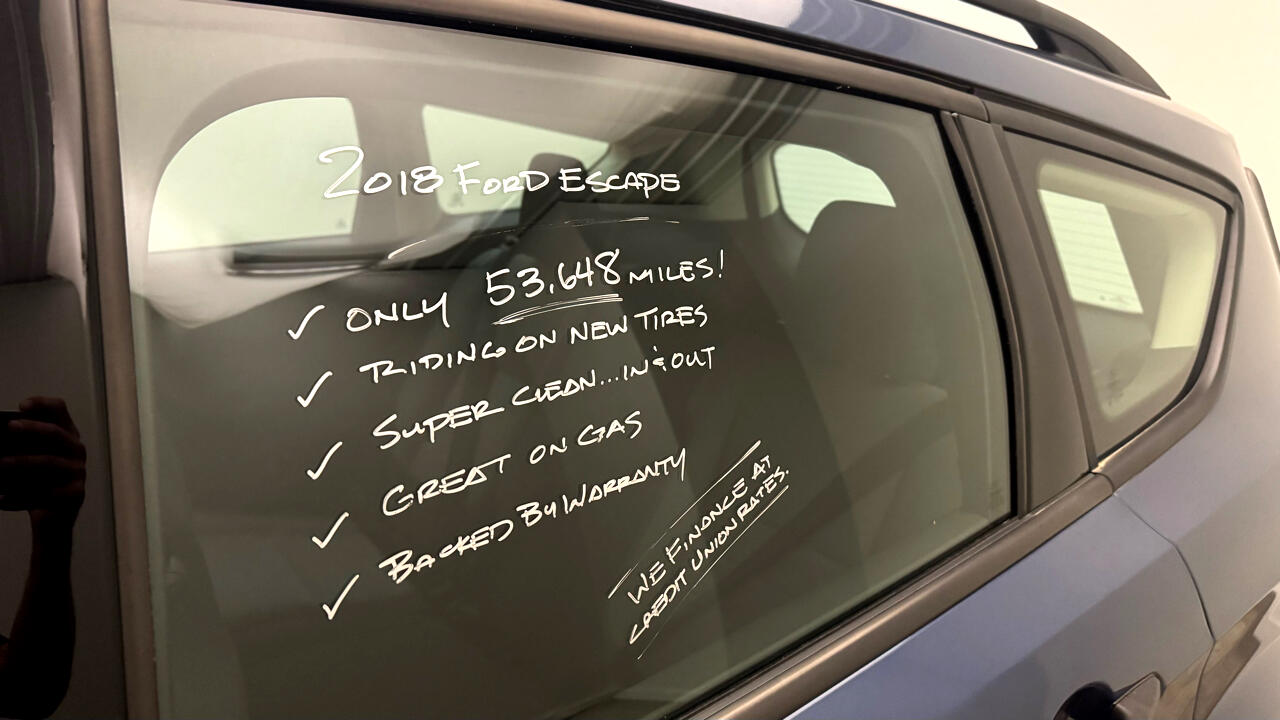 2018 FORD ESCAPE
✓ ONLY 53,648 MILES!
✓ RIDING ON NEW TIRES
✓ SUPER CLEAN...IN & OUT
✓ GREAT ON GAS
✓ BACKED BY WARRANTY
WE FINANCE AT
CREDIT UNION RATES.